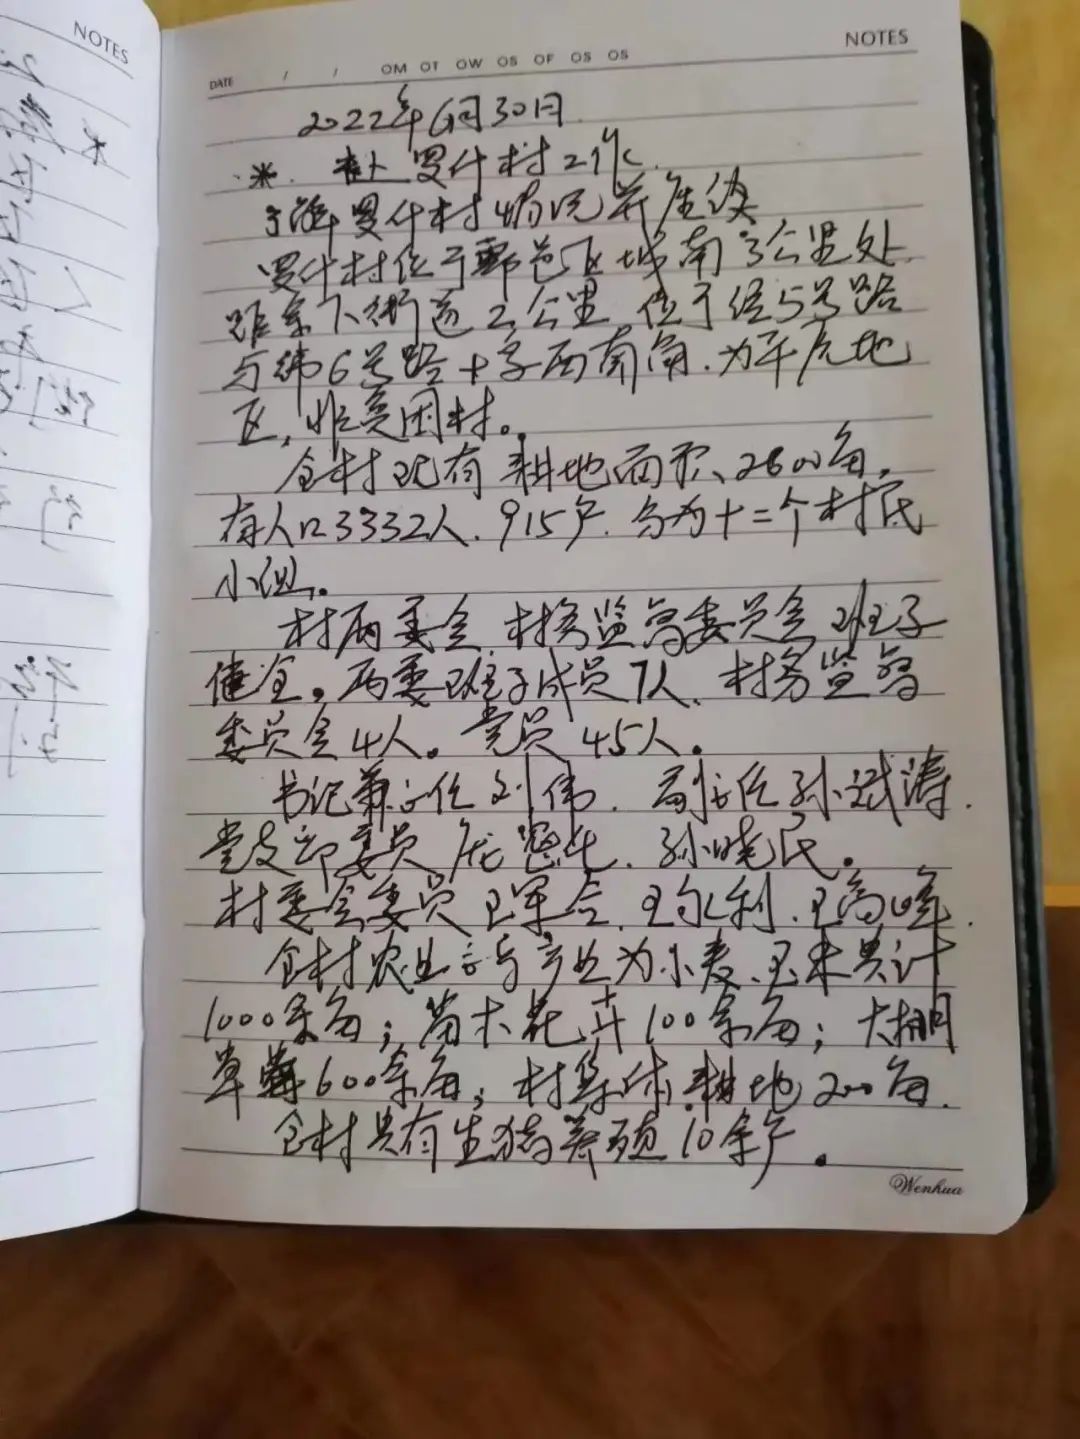 NOTES
NOTES
DATE / / OM OT OW OS OF OS OS
2022年6月30日
※. 赴罗什村工作.
了解罗什村情况并座谈
罗什村位于鄠邑区城南3公里处.
距余下街道2公里, 位于经5号路
与纬6号路十字西南角.为平原地
区,非贫困村。
全村现有耕地面积2800亩,
有人口3332人.915户.分为十二个村民
小组。
村两委会.村务监督委员会班子
健全。两委班子成员7人.村务监督
委员会4人。党员45人。
书记兼主任刘伟.副主任孙斌涛.
党支部委员 民.孙晓民。
村委会委员王军会.王永利.王高峰.
全村农业主导产业为小麦、玉米共计
1000余亩;苗木花卉100余亩;大棚
草莓600余亩;村集体耕地200亩.
全村共有生猪养殖10余户。
Wenhua